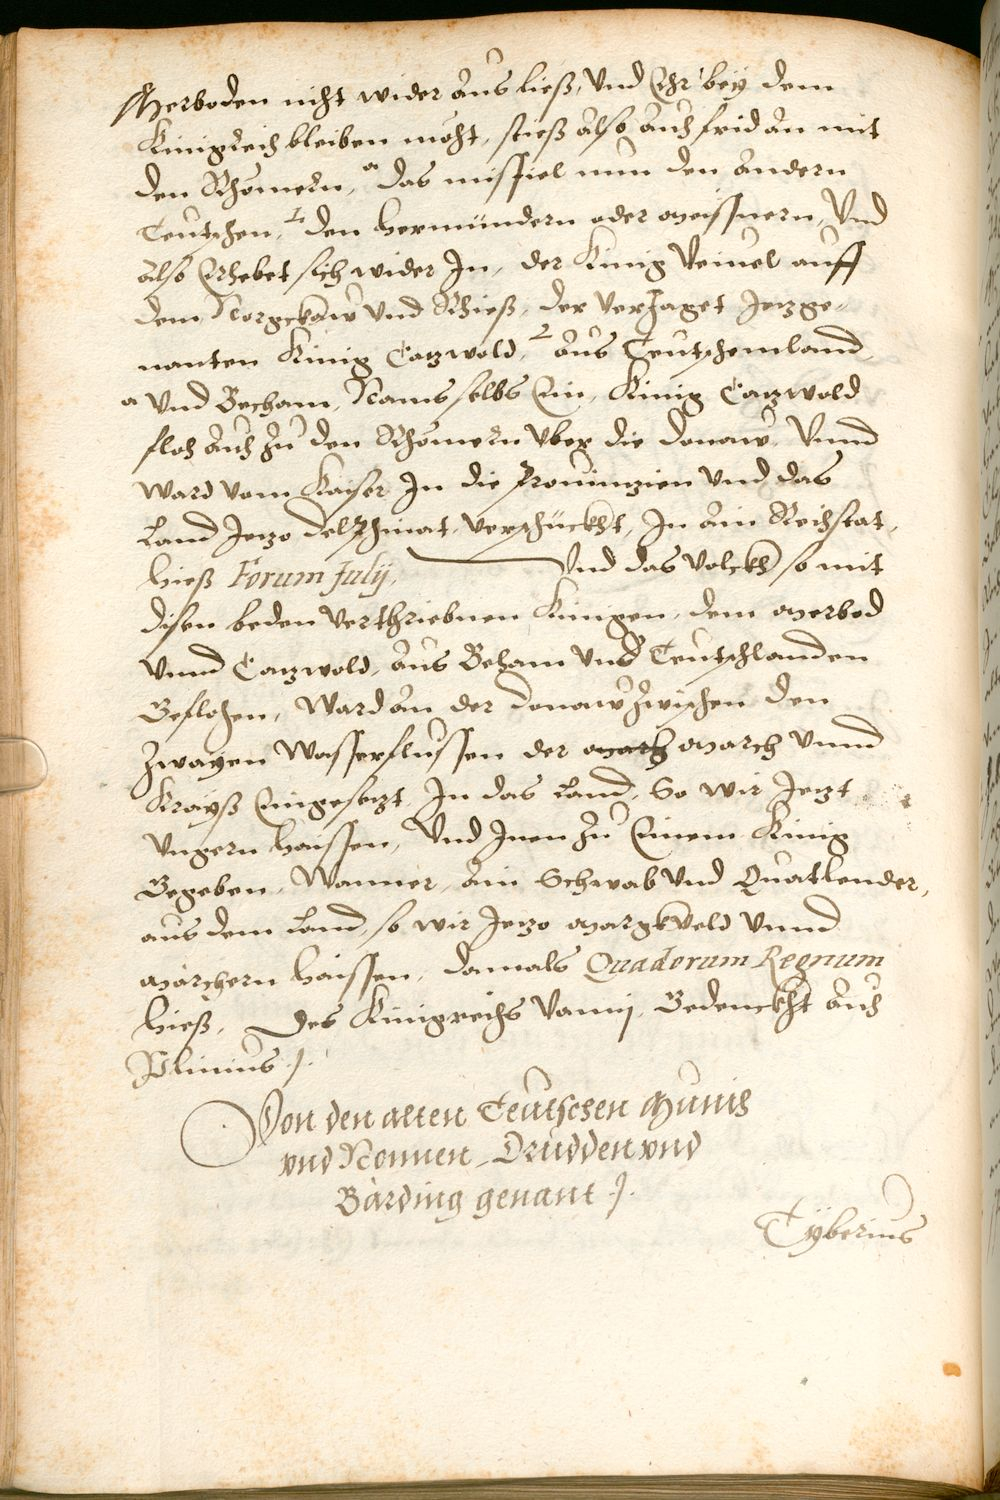 Merboden nicht wider aus ließ, Vnd Ehr bey dem
Kinigreich bleiben mocht, stieß also auch frid an mit
den Rhomern, a das missfiel nun den andern
Teutschen, 1 den hermündern oder Meissnern, Vnd
also Erhebet sich wider In, der Kinig Veiuel auff
dem Norgckaw Vnd Rhieß, der verJaget Jezge-
nanten Kinig Cazwold, 2 aus Teutschemland,
a Vnd Becham, Nams selbs Ein, Kinig Cazwold
floh auch zu den Rhomern Vber die donaw, Vnnd
ward vom Kaiser In die Prouinzien Vnd das
Land Jezo delphinat, verschückht, In ain Reichstat,
hieß Forum July, Vnd das volckh so mit
disen beden verthriebnen Kinigen, dem Merbod
vnnd Cazwold, aus Beham Vnd Teutschlanden
Geflohen, Ward an der donaw zwischen den
Zwayen Wasserflussen der March Vnnd
Krayß Eingesezt, In das Land, So wir Jezt
Vngern haissen, Vnd Jnen zu Einem Kinig
Gegeben, Wanner, ain Schwab Vnd Quatlender,
aus dem Land, so wir Jezo Margkveld Vnnd
Märchern haissen, damals Quadorum Regnum
hieß, Des Kinigreichs Vannij, Gedenckht auch
Plinius ./.
Von den alten Teutschen Munis
vnd Nonnen, Drudden vnd
Bärding genant ./.
Tyberius